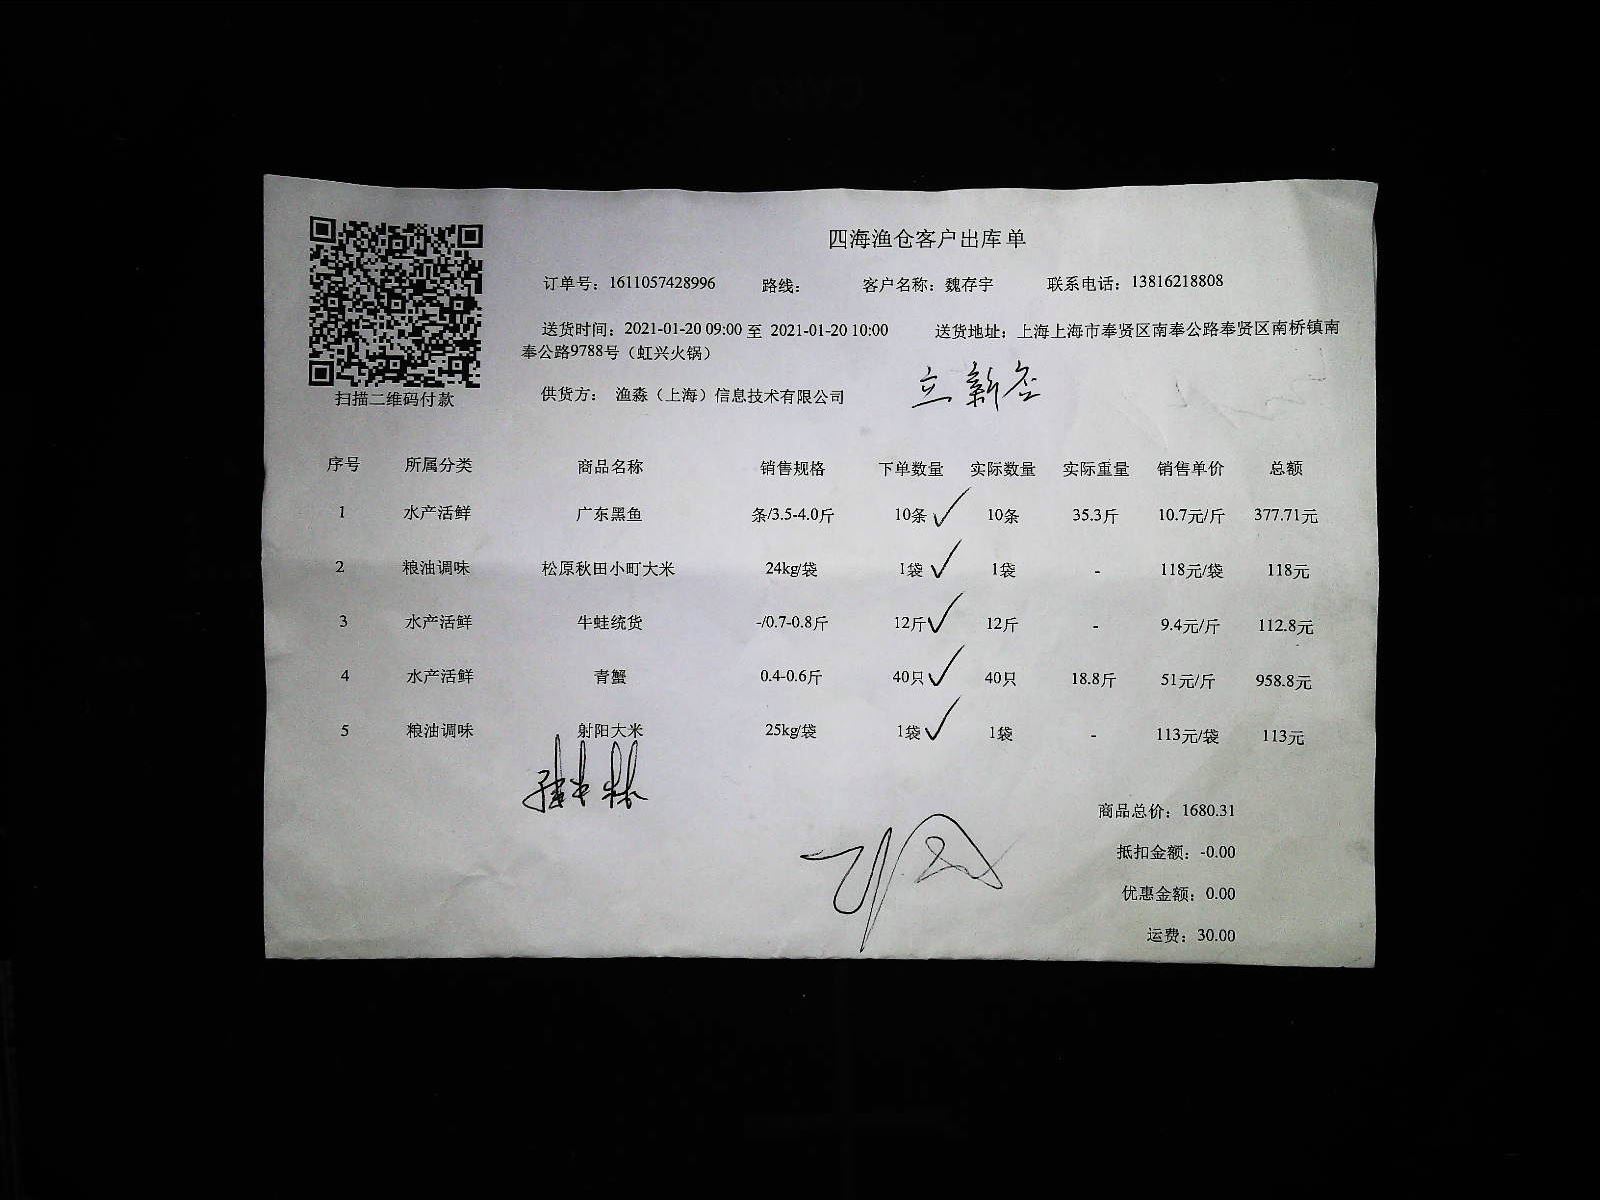 四海渔仓客户出库单
订单号：1611057428996 路线： 客户名称：魏存宇 联系电话：13816218808
送货时间：2021-01-20 09:00 至 2021-01-20 10:00 送货地址：上海上海市奉贤区南奉公路奉贤区南桥镇南
奉公路9788号（虹兴火锅）
供货方： 渔淼（上海）信息技术有限公司
扫描二维码付款
序号 所属分类 商品名称 销售规格 下单数量 实际数量 实际重量 销售单价 总额
1 水产活鲜 广东黑鱼 条/3.5-4.0斤 10条 10条 35.3斤 10.7元/斤 377.71元
2 粮油调味 松原秋田小町大米 24kg/袋 1袋 1袋 - 118元/袋 118元
3 水产活鲜 牛蛙统货 -/0.7-0.8斤 12斤 12斤 - 9.4元/斤 112.8元
4 水产活鲜 青蟹 0.4-0.6斤 40只 40只 18.8斤 51元/斤 958.8元
5 粮油调味 射阳大米 25kg/袋 1袋 1袋 - 113元/袋 113元
商品总价：1680.31
抵扣金额：-0.00
优惠金额：0.00
运费：30.00